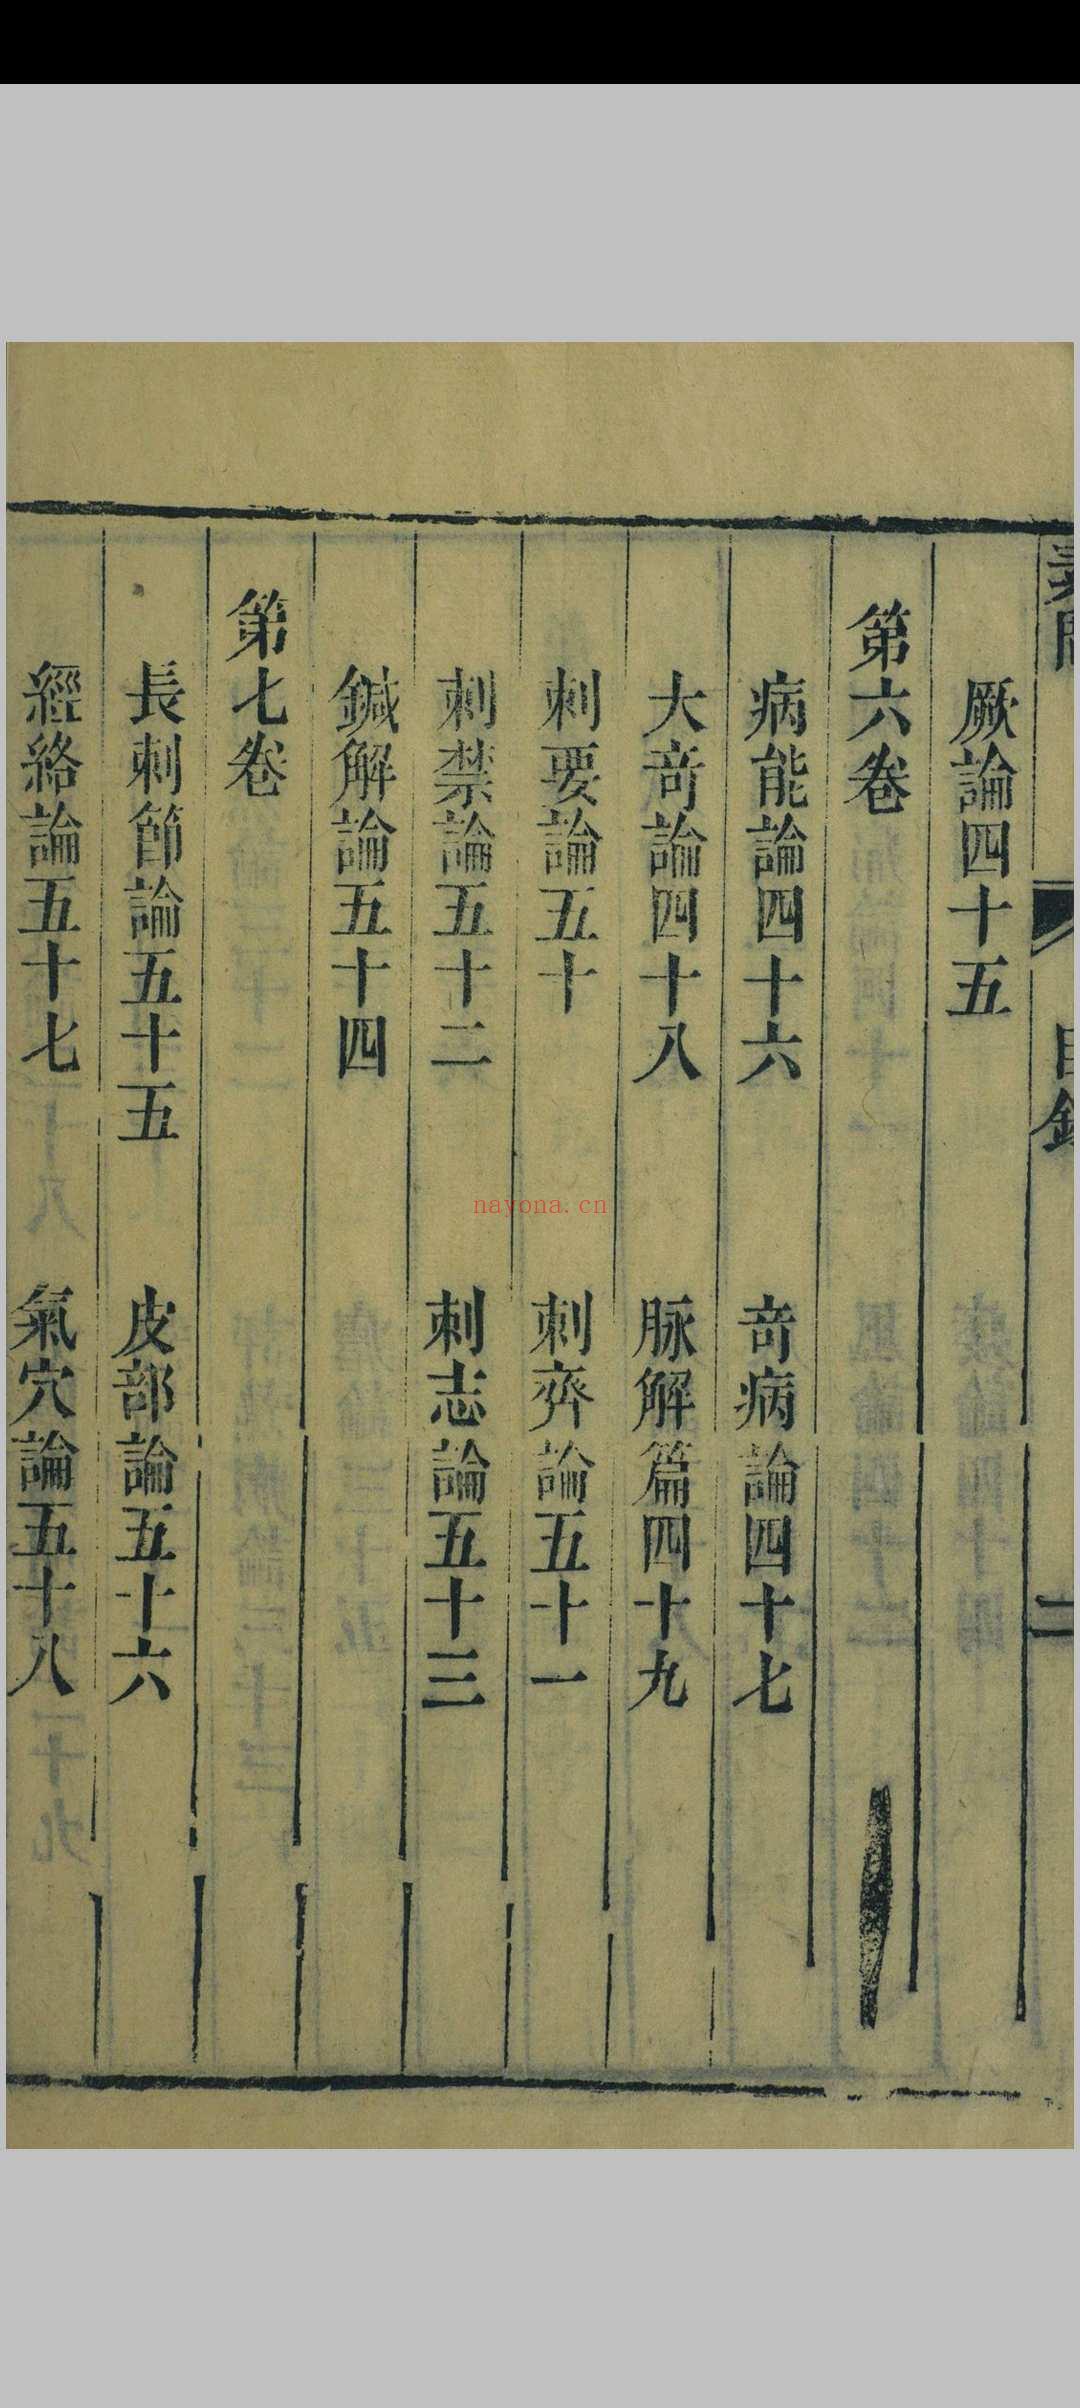 目錄
二
厥論四十五
第六卷
病能論四十六
竒病論四十七
大竒論四十八
脉解篇四十九
刺要論五十
刺齊論五十一
刺禁論五十二
刺志論五十三
鍼解論五十四
第七卷
長刺節論五十五
皮部論五十六
經絡論五十七
氣穴論五十八
nayona.cn